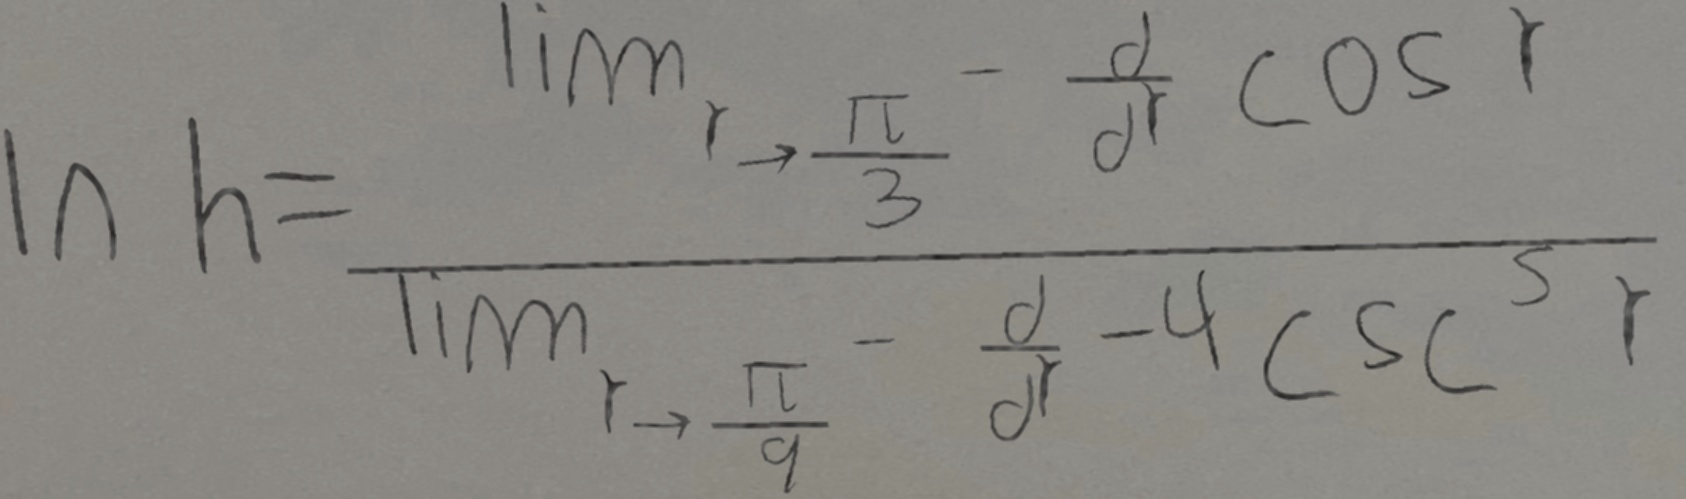 ln h = \frac{\lim_{r \to \frac{\pi}{3}^-} \frac{d}{dr} \cos r}{\lim_{r \to \frac{\pi}{9}^-} \frac{d}{dr} -4 \csc^5 r}